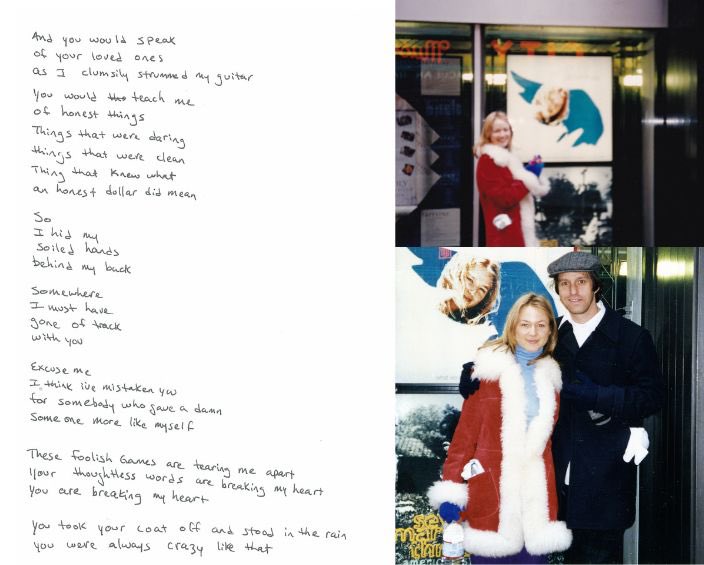 And you would speak
of your loved ones
as I clumsily strummed my guitar
You would the teach me
of honest things
Things that were daring
things that were clean
Thing that knew what
an honest dollar did mean
So
I hid my
soiled hands
behind my back
Somewhere
I must have
gone of track
with you
Excuse me
I think ive mistaken you
for somebody who gave a damn
Some one more like myself
These foolish Games are tearing me apart
Your thoughtless words are breaking my heart
You are breaking my heart
you took your coat off and stood in the rain
you were always crazy like that
CITY